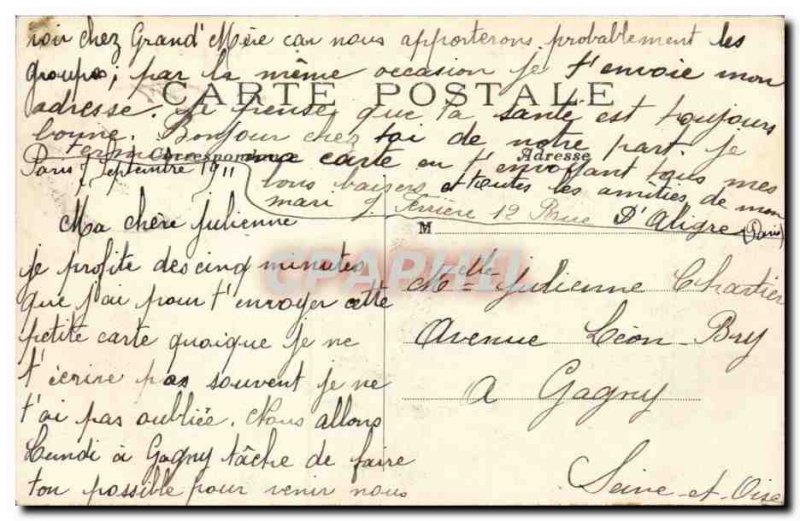 Paris 7 Septembre 1911
Ma chère Julienne
je profite des cinq minutes
que j'ai pour t'envoyer cette
petite carte quoique je ne
t'écrive pas souvent je ne
t'ai pas oubliée. Nous allons
Lundi à Gagny tâche de faire
ton possible pour venir nous
voir chez Grand'Mère car nous apporterons probablement les
groupes; par la même occasion je t'envoie mon
adresse. Je pense que ta santé est toujours
bonne. Bonjour chez toi de notre part. Je
termine ma carte en t'envoyant tous mes
bons baisers et toutes les amitiés de mon
mari J. Perrière 12 Rue D'Aligre (Paris)
CARTE POSTALE
Correspondance
Adresse
M
Mdlle Julienne Chartier
Avenue Léon-Bry
à Gagny
Seine-et-Oise
CPARPHIL